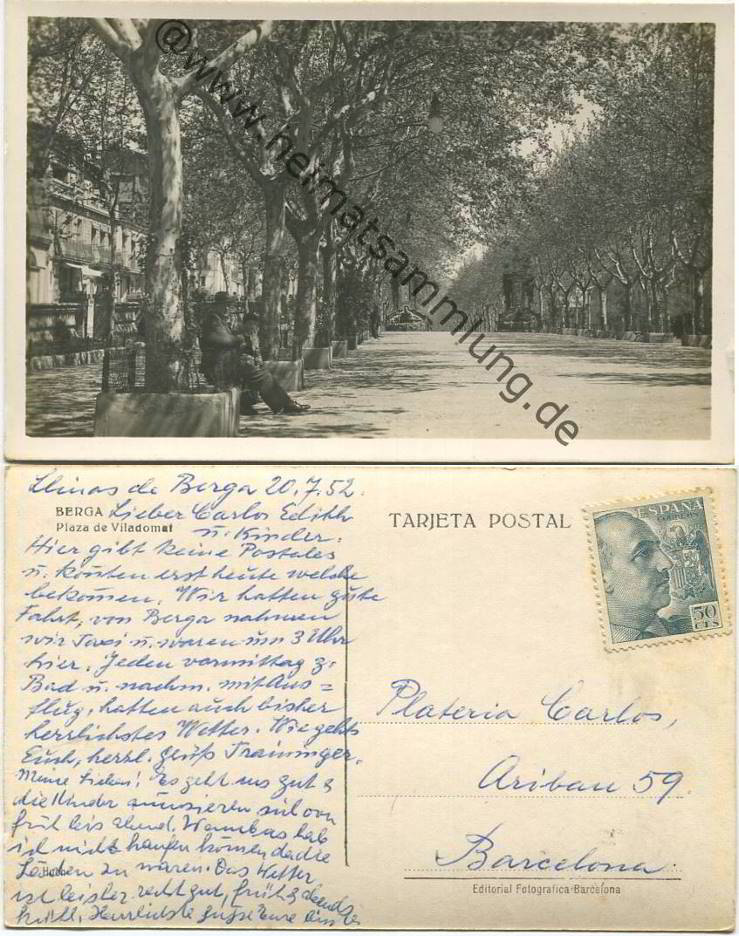 @www.heimatsammlung.de
Llinas de Berga 20.7.52.
BERGA Lieber Carlos Edith
Plaza de Viladomat u. Kinder.
TARJETA POSTAL
ESPAÑA
CORREOS
50
CTS
Hier gibt keine Postales
u. konten erst heute welche
bekomen. Wir hatten gute
Fahrt, von Berga nahmen
wir Taxi u. waren um 3 Uhr
hier. Jeden vormittag z.
Bad u. nachm. mit Aus=
flug, hatten auch bisher
herrlichstes Wetter. Wie gehts
Euch, herzl. Grüß
Meine Lieben! Es geht uns gut &
die Kinder amüsieren sich von
früh bis abend.
ich nicht kaufen können da die
Läden zu waren. Das Wetter
ist leider recht gut, früh & abends
kühl. Herzlichste Grüße Eure
Plateria Carlos,
Aribau 59.
Barcelona.
Editorial Fotografica-Barcelona